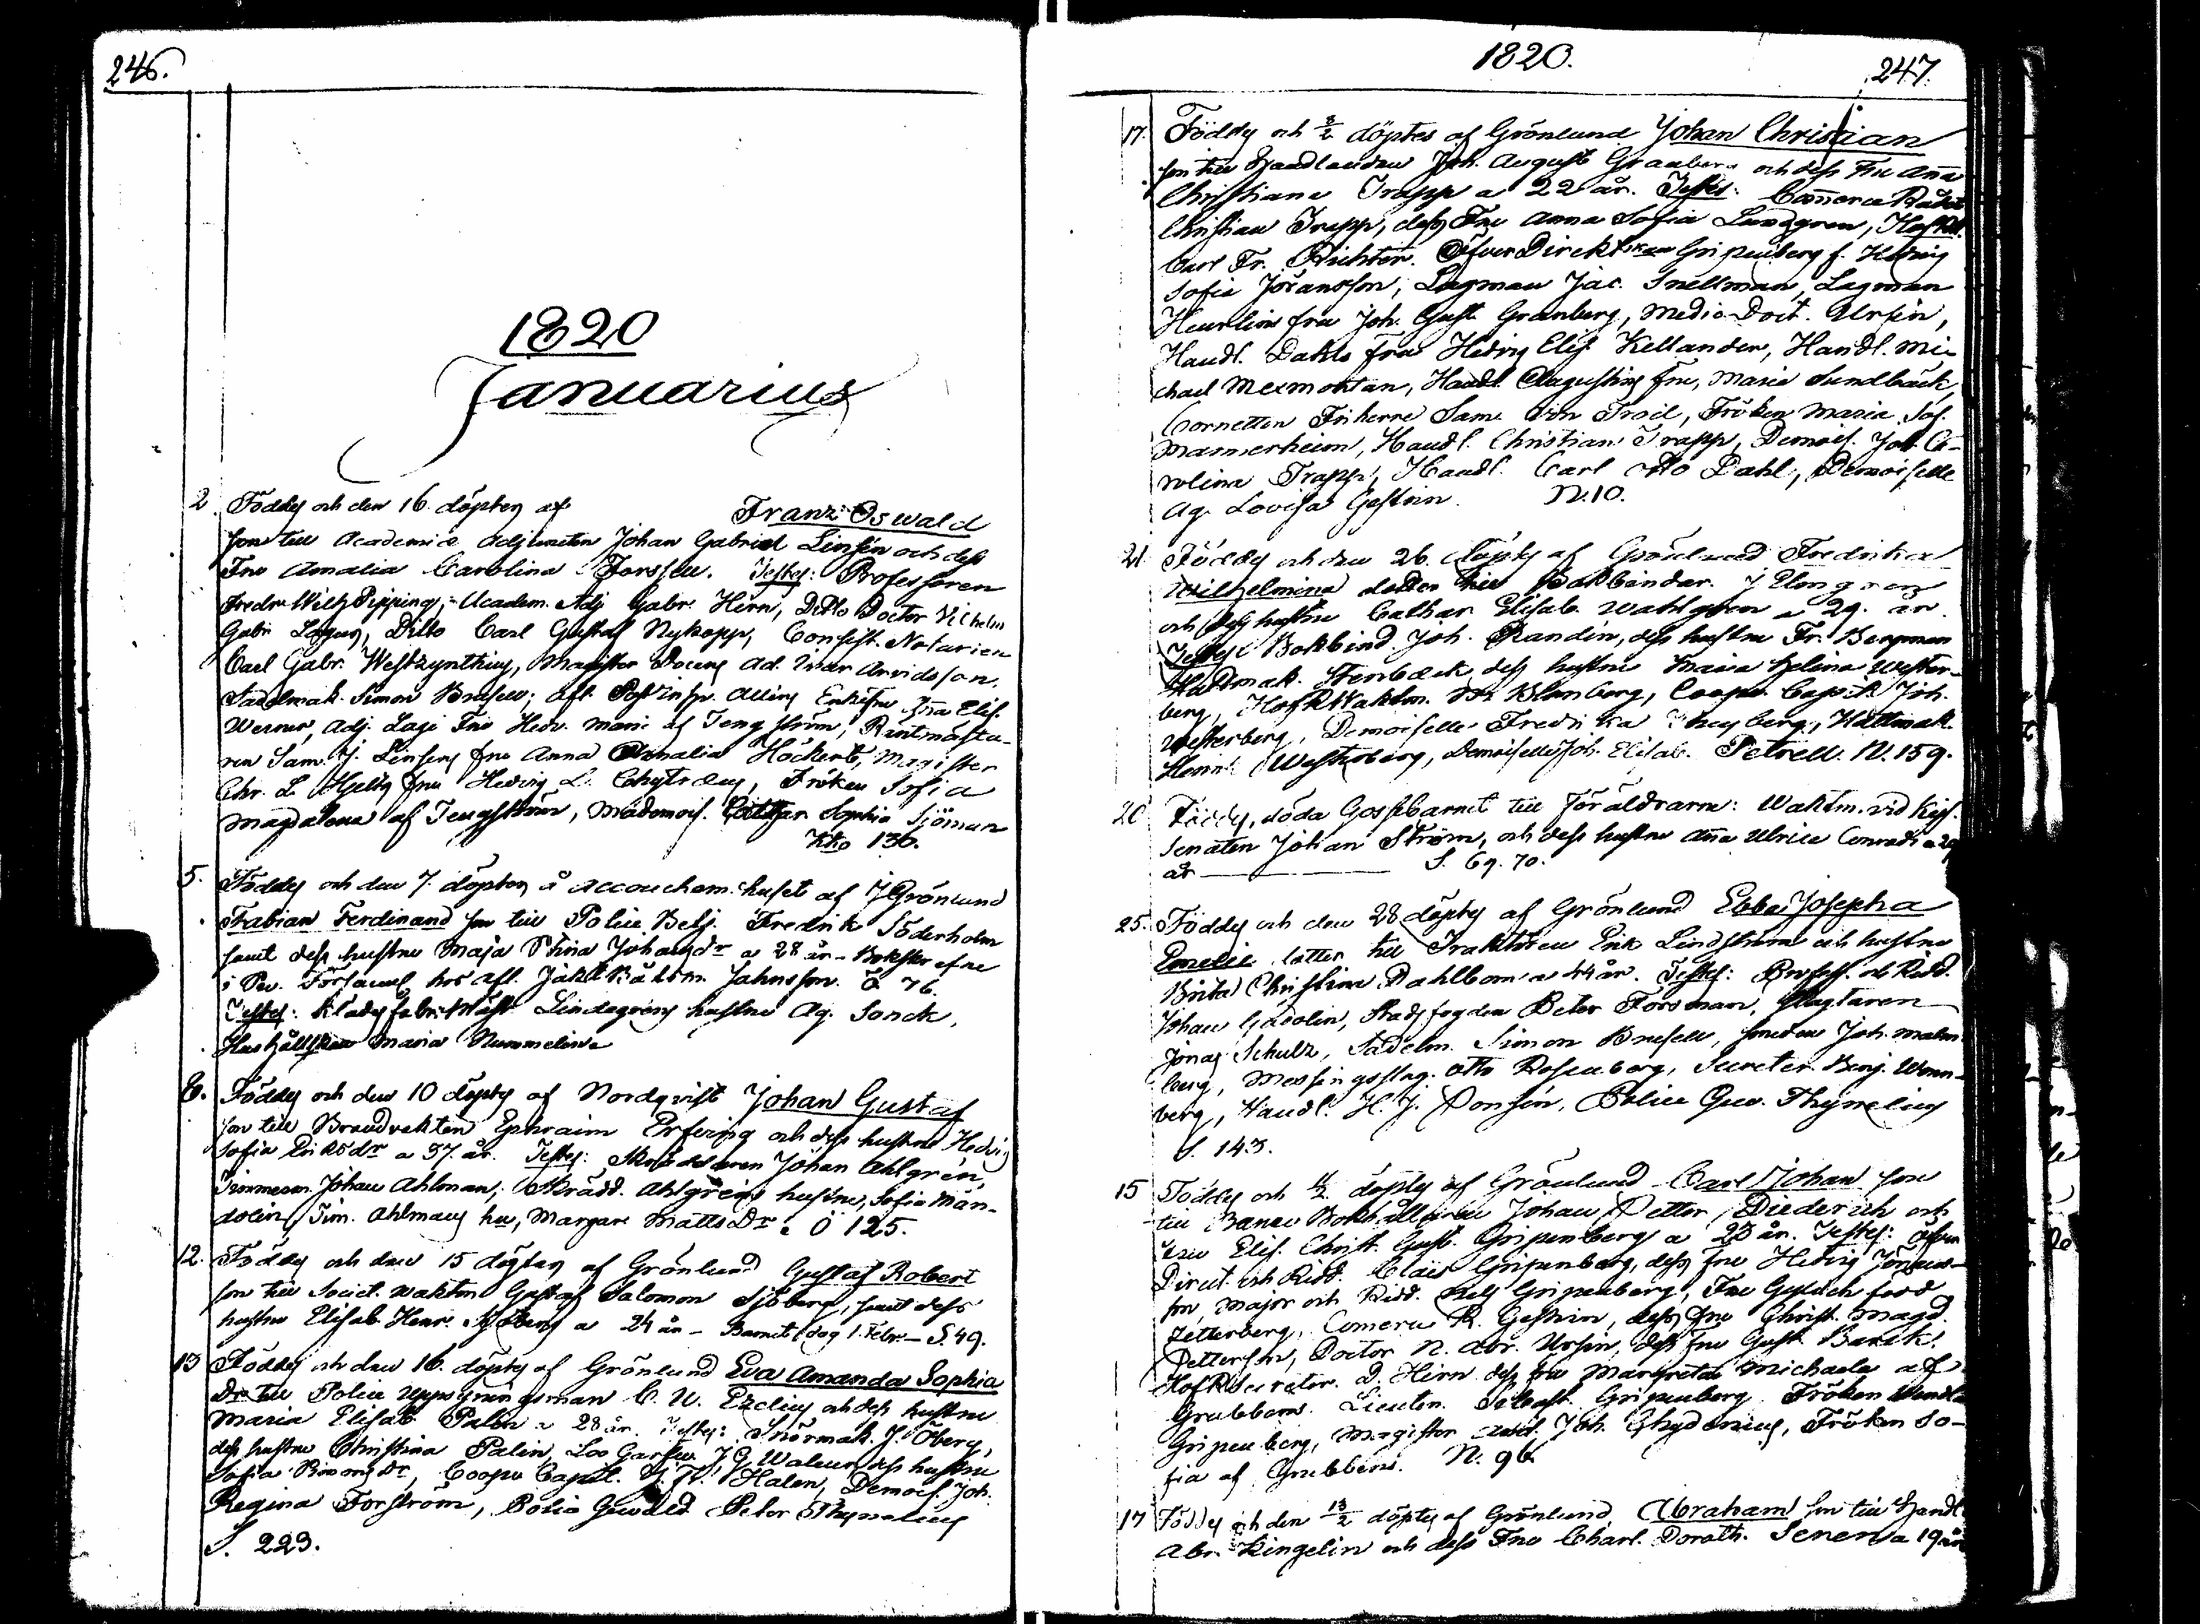 246.
1820
Januarius
2. Föddes och den 16. döptes af Franz Oswald
son till Academie Adjuncten Johan Gabriel Linsén och dess
Fru Amalia Carolina Forssell. Testes: Professoren
Fredr. Wilh. Pipping, Academ. Adj. Gabr. Hirn, Ditto Doctor Vilhelm
Gabr. Lagus, Ditto Carl Gustaf Nykopp, Consist. Notarien
Carl Gabr. Westzynthius, Magister Docens Ad. Ivar Arvidsson,
Sadelmak. Simon Brusell; Afl. Enkefru Elis.
Werner, Adj. Lagi Fru Hedv. Maria af Tengström, Räntmästa-
ren Sam. J. Linsens fru Anna Amalia Höckert, Magister
Chr. L. Hjelts fru Hedvig L. Chytræus, Fröken Sofia
Magdalena af Tengström, Mademois. Sophia Sjöman
Kko 130.
5. Föddes och den 7. döptes å Accouchem. huset af J Grönlund
Fabian Ferdinand son till Police Betj. Fredrik Söderholm
samt dess hustru Maja Stina Johansdr a 28 år.
i Församl. hos afl. Jahnsson. Ö 76.
Testes: Klädesfabr. Mäst. Lindegrens hustru Ag. Sonck,
Hushållskan Maria Nummelin
6. Föddes och den 10 döptes af Nordqvist Johan Gustaf
son till Brandvakten Ephraim Erfving och dess hustru Hedvig
Sofia a 37. år. Testes: Skräddaren Johan Ahlgren,
Timmerm. Johan Ahlman, Skrädd. Ahlgrens hustru, Sofia Man-
dolin, Tim. Ahlmans hu, Margar. Matts Dr. Ö 125.
12. Föddes och den 15 döptes af Grönlund Gustaf Robert
son till Societ. waktm. Gustaf Salomon Sjöberg, samt dess
hustru Elisab. Henr. Sjöberg a 24 år - Barnet dog 1. Febr. - S. 49.
13 Föddes och den 16. döptes af Grönlund Eva Amanda Sophia
Dr till Police Uppsyningsman C. U. Ezelius och dess hustru
Maria Elisab. Palén a 28 år. Testes: Snörmak. J. Öberg,
dess hustru Christina Palén, Loo Garfv. J G Waleen dess hustru
Sofia, Coopv. Capit. Halen, Demois. Joh.
Regina Forström, Police Gevald. Peter Thynelius
S. 223.
1820.
247.
17. Föddes och 3/2 döptes af Grönlund Johan Christian
son till Handlanden Joh. August Granberg och dess Fru Anna
Christiana Trapp a 22 år. Testes: Commerce Rådet
Christian Trapp, dess Fru Anna Sofia Lundgren,
Carl Fr. Richter. Öfver Direktskan Gripenberg f. Hedvig
Sofia Jöransson, Lagman Jac. Snellman, Lagman
Heurlins fru Joh. Gust. Granberg, Medic. Doct. Ursin,
Handl. Dahls fru Hedvig Elis. Kellander, Handl. Mi-
chael Mexmontan, Handl. Augustins fru, Maria Sundbäck,
Cornetten Friherre Sam. von Troil, Fröken Maria Sof.
Mannerheim, Handl. Christian Trapp, Demois. Joh. Ca-
rolina Trapp, Handl. Carl Otto Dahl, Demoiselle
Ag. Lovisa Gestrin. N. 10.
21. Föddes och den 26. döptes af Grönlund Fredrika
Wilhelmina dotter till Bokbindar. J Elmgren
och dess hustru Cathar. Elisab. Wahlgren a 29. år.
Testes: Bokbind. Joh. Randin, dess hustru Fr. Bergman
Hattmak. Stenbäck, dess hustru Maria Helena Wester-
berg, HofR. Waktm. Blomberg, Coopv. Capit. Joh.
Westerberg, Demoiselle Fredrika, Hattmak.
Henr. Westerberg, Demoiselle Joh. Elisab. Petrell. N. 159.
20 Föddes, döda Gossebarnet till Föräldrarne: Waktm. vid Kejs.
Senaten Johan Ström, och dess hustru Anna Ulrica Conradi a 29
år S. 69. 70.
25. Föddes och den 28 döptes af Grönlund Ebba Josepha
Emelie dotter till Traktören Erik Lindström och hustru
Brita Christina Dahlbom a 44 år. Testes: Profess. och Ridd.
Johan Gadolin, Stadsfogden Peter Forsman, Slagtaren
Jonas Schulz, Sadelm. Simon Brusell, smeden Joh. Malm-
berg, Messingsslag. Otto Rosenberg, Secreter. Benj. Wenn-
berg, Handl. H. J. Ponsin, Police Gev. Thynelius
S. 143.
15 Föddes och 4/2 döptes af Grönlund Carl Johan son
till Banco Bokhållaren Johan Petter Diederich och
Elis. Christ. Gust. Gripenberg a 23 år. Testes: Öfver
Direct. och Ridd. Claes Gripenberg, dess fru Hedvig Jörans-
son, Major och Ridd. Gripenberg, Fru född
Zetterberg, Comerce R. Gestrin, dess fru Christ. Magd.
Petterson, Doctor N. Abr. Ursin, dess fru Gust. Barck.
HofR. Secreter. D. Hirn dess fru Margreta Michaela af
Grubbens. Lieuten. Gripenberg. Fröken
Gripenberg, Magister Joh. Chydenius, Fröken So-
fia af Grubbens. N. 96
17 Föddes och den 13/2 döptes af Grönlund, Abraham son till Handl.
Abr. Kingelin och dess Fru Charl. Doroth. a 19 år